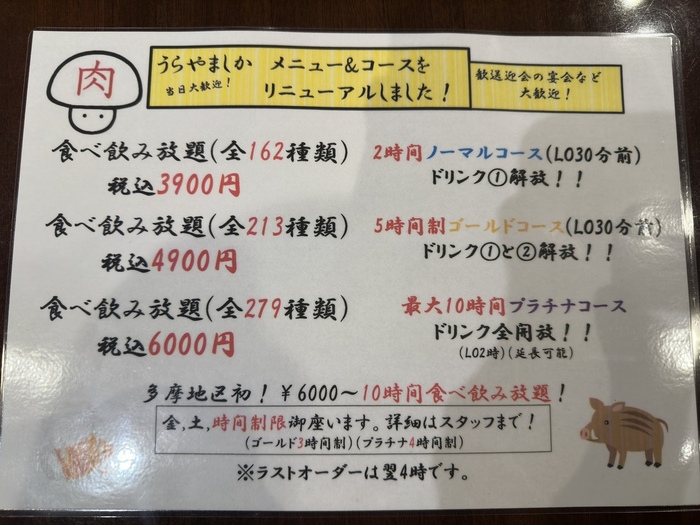 肉
うらやましか メニュー&コースを
当日大歓迎! リニューアルしました!
歓送迎会の宴会など
大歓迎!
食べ飲み放題(全162種類)
税込3900円
2時間ノーマルコース(LO30分前)
ドリンク①解放!!
食べ飲み放題(全213種類)
税込4900円
5時間制ゴールドコース(LO30分前)
ドリンク①と②解放!!
食べ飲み放題(全279種類)
税込6000円
最大10時間プラチナコース
ドリンク全開放!!
(LO2時)(延長可能)
多摩地区初!¥6000~10時間食べ飲み放題!
金,土,時間制限御座います。詳細はスタッフまで!
(ゴールド3時間制)(プラチナ4時間制)
※ラストオーダーは翌4時です。